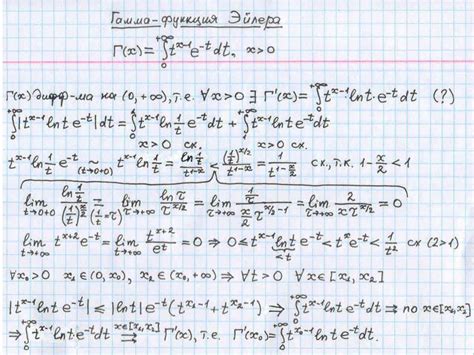 Гамма-функция Эйлера
Γ(x) = ∫₀^{+∞} t^{x-1} e^{-t} dt, x>0
Γ(x) дифф-ма на (0, +∞), т.е. ∀x>0 ∃ Γ'(x) = ∫₀^{+∞} t^{x-1} ln t · e^{-t} dt (?)
∫₀^{+∞} |t^{x-1} ln t e^{-t}| dt = ∫₀^{1} t^{x-1} ln 1/t e^{-t} dt + ∫₁^{+∞} t^{x-1} ln t e^{-t} dt
x>0 сх. x>0 сх.
t^{x-1} ln 1/t e^{-t} ~_{t→0+0} t^{x-1} ln 1/t = (ln 1/t)/(t^{1-x}) < ((1/t)^{x/2})/(t^{1-x}) = 1/(t^{1-x/2}) сх., т.к. 1-x/2 < 1
lim_{t→0+0} (ln 1/t)/((1/t)^{x/2}) (1/t=τ) = lim_{τ→+∞} (ln τ)/(τ^{x/2}) = lim_{τ→+∞} (1/τ)/(x/2 τ^{x/2-1}) = lim_{τ→+∞} 2/(x τ^{x/2}) = 0
lim_{t→+∞} t^{x+2} e^{-t} = lim_{t→+∞} (t^{x+2})/(e^t) = 0 ⇒ 0 ≤ t^{x-1} ln t e^{-t} < t^x e^{-t} < 1/t² сх (2>1)
∧ t ∀t>0
∀x₀>0 x₁∈(0, x₀), x₂∈(x₀, +∞) ⇒ ∀t>0 ∀x∈[x₁, x₂]
|t^{x-1} ln t e^{-t}| ≤ |ln t| e^{-t} (t^{x₁-1} + t^{x₂-1}) ⇒ ∫₀^{+∞} t^{x-1} ln t e^{-t} dt ⇉ по x∈[x₁,x₂]
⇒ ∫₀^{+∞} t^{x-1} ln t e^{-t} dt ⇉^{x∈[x₁,x₂]} Γ'(x), т.е. Γ'(x₀) = ∫₀^{+∞} t^{x₀-1} ln t e^{-t} dt.